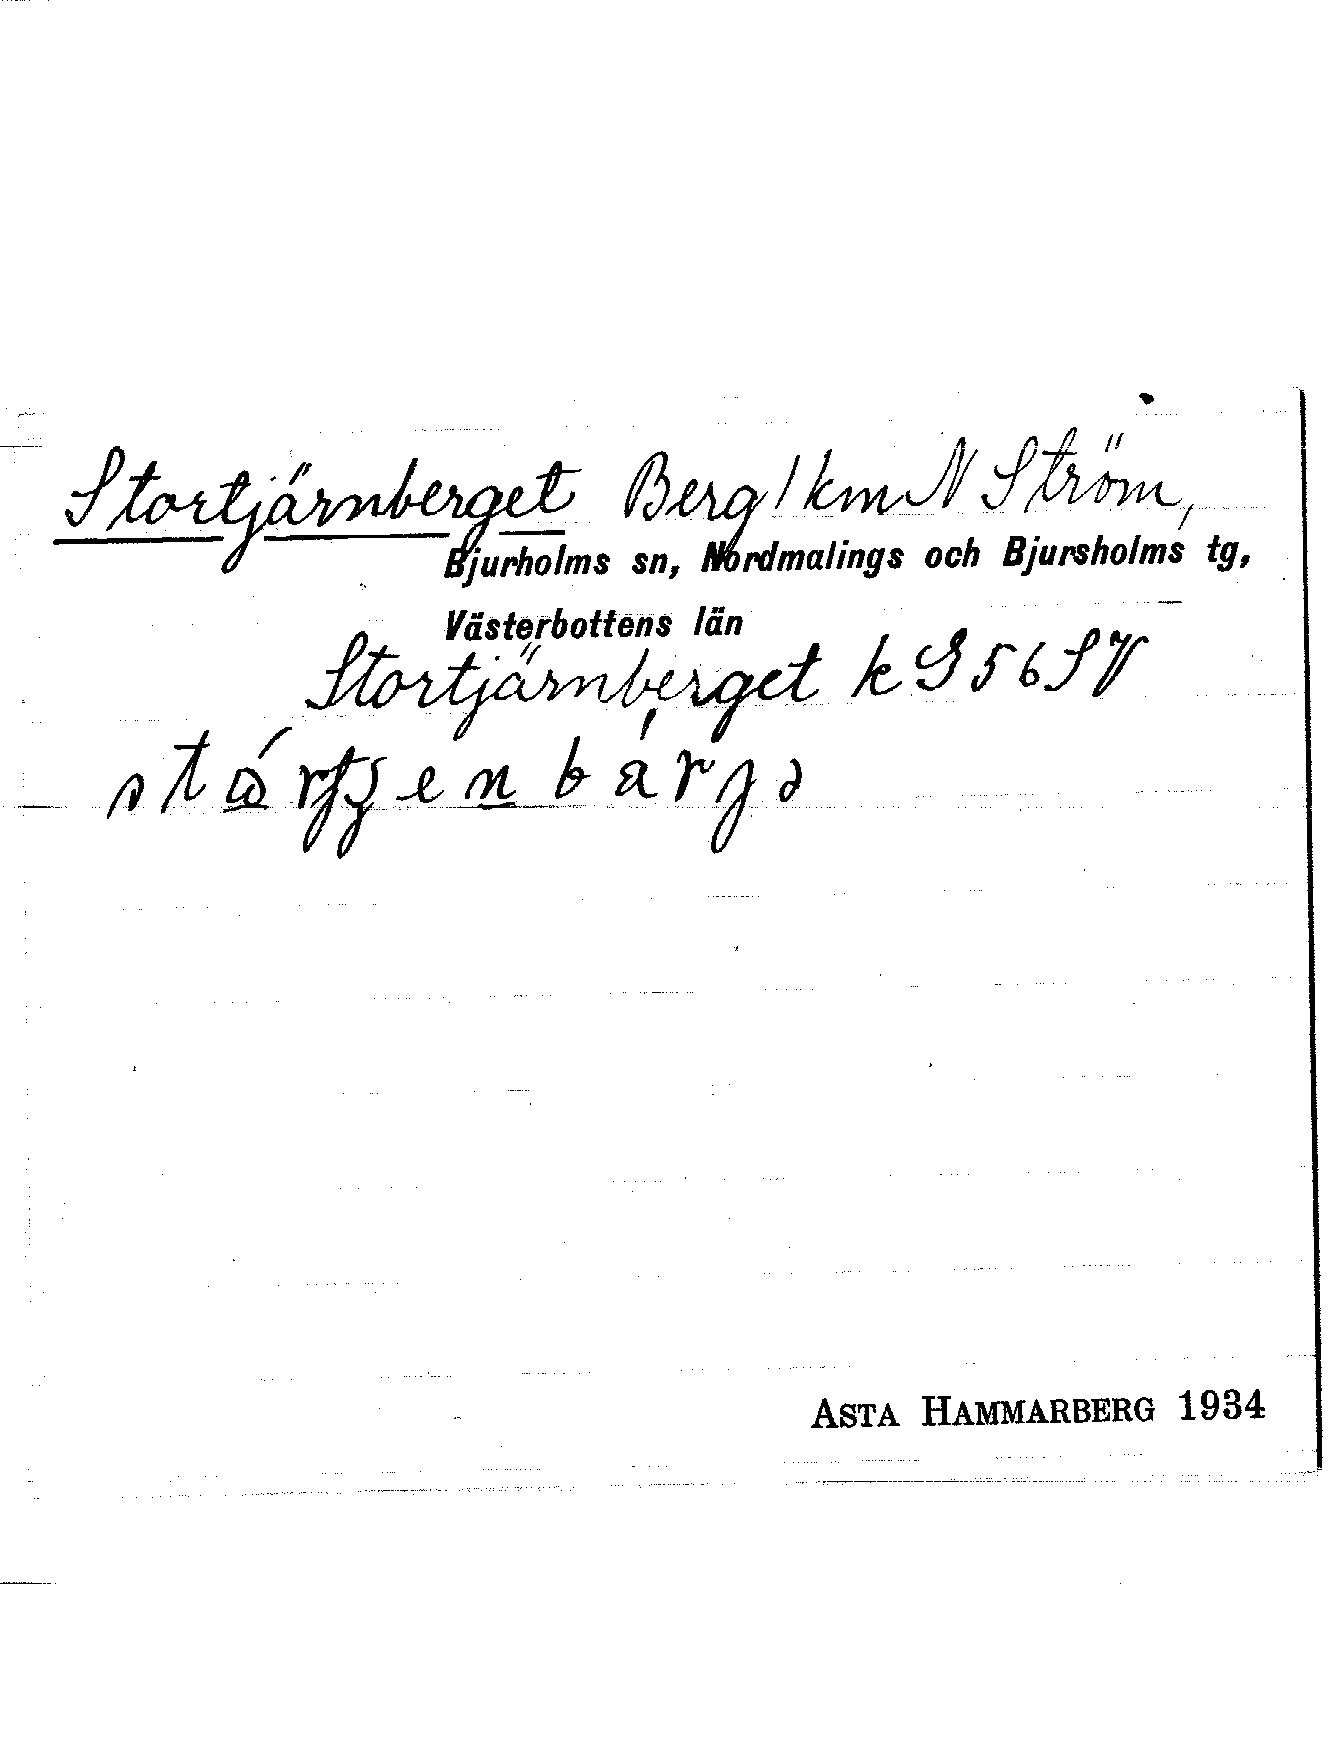 Stortjärnberget Berg 1 km N Ström,
Bjurholms sn, Nordmalings och Bjursholms tg,
Västerbottens län
Stortjärnberget k G 56 SV
ASTA HAMMARBERG 1934